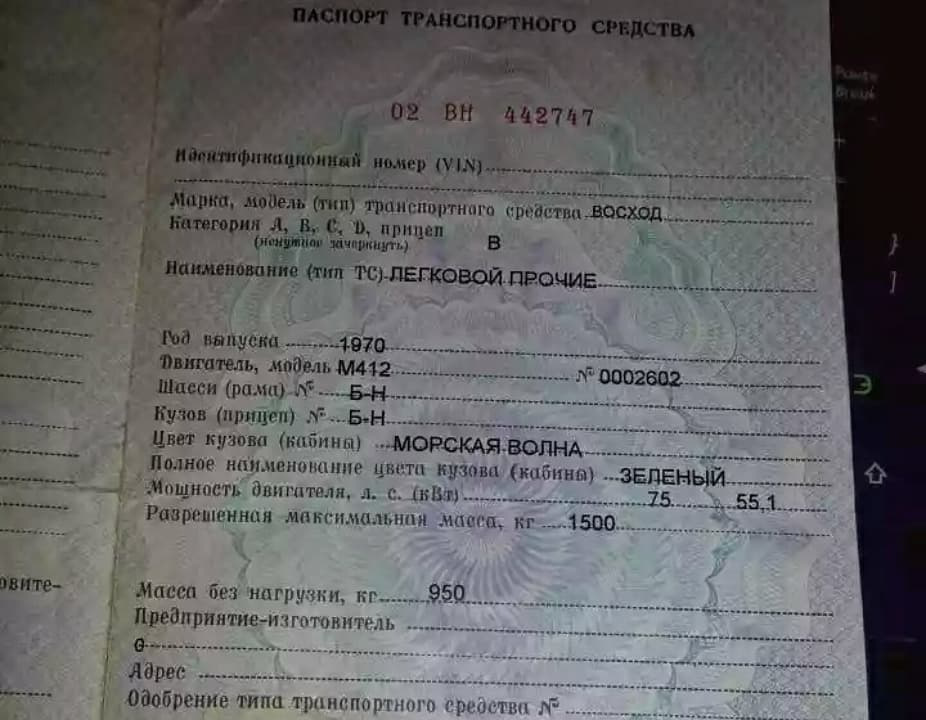 ПАСПОРТ ТРАНСПОРТНОГО СРЕДСТВА
02 ВН 442747
Идентификационный номер (VIN)
Марка, модель (тип) транспортного средства ВОСХОД
Категория А, В, С, D, прицеп
(ненужное зачеркнуть) В
Наименование (тип ТС) ЛЕГКОВОЙ ПРОЧИЕ
Год выпуска 1970
Двигатель, модель М412 № 0002602
Шасси (рама) № Б-Н
Кузов (прицеп) № Б-Н
Цвет кузова (кабины) МОРСКАЯ ВОЛНА
Полное наименование цвета кузова (кабины) ЗЕЛЕНЫЙ
Мощность двигателя, л. с. (кВт) 75 55,1
Разрешенная максимальная масса, кг 1500
овите-
Масса без нагрузки, кг 950
Предприятие-изготовитель
0
Адрес
Одобрение типа транспортного средства №
Pause
Break
}
]
Э